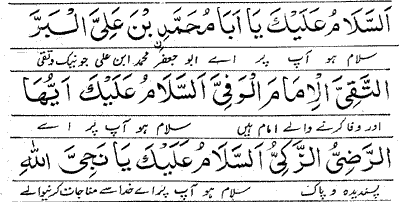 اَلسَّلَامُ عَلَيْكَ يَا اَبَا مُحَمَّدِ بْنَ عَلِيٍّ الْبَرَّ
سلام ہو آپ پر اے ابو جعفر محمد ابن علی جو نیک و تقی
التَّقِيَّ الْاِمَامَ الْوَفِيَّ اَلسَّلَامُ عَلَيْكَ اَيُّهَا
اور وفا کرنے والے امام ہیں سلام ہو آپ پر اے
الرَّضِيُّ الزَّكِيُّ اَلسَّلَامُ عَلَيْكَ يَا نَجِيَّ اللهِ
پسندیدہ و پاک سلام ہو آپ پر اے خدا سے مناجات کرنیوالے